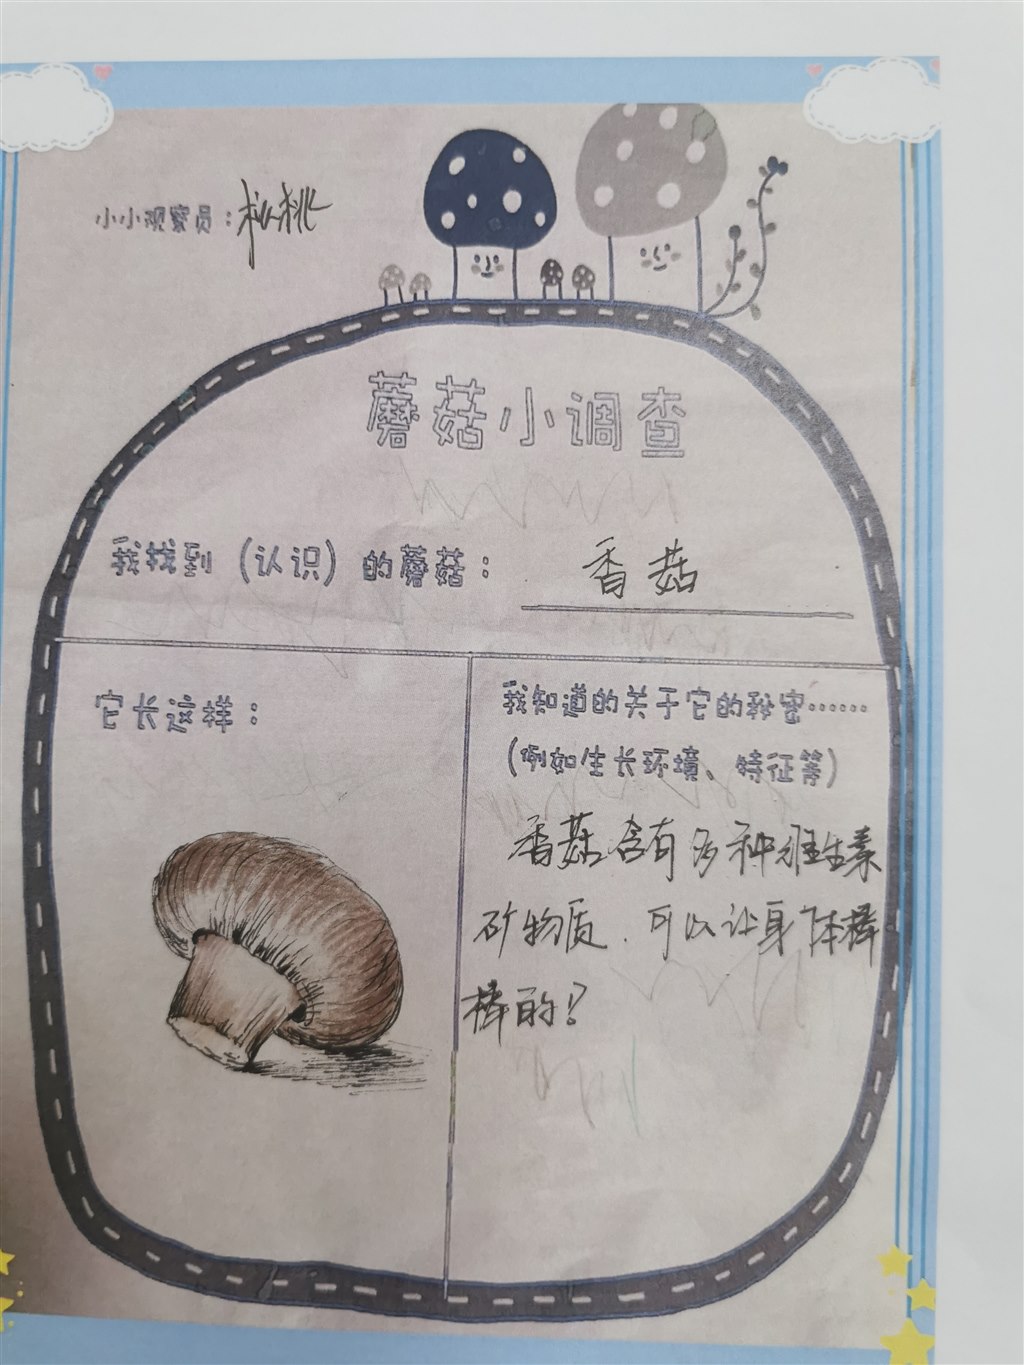 小小观察员：松桃
蘑菇小调查
我找到（认识）的蘑菇：香菇
它长这样：
我知道的关于它的秘密……
（例如生长环境、特征等）
香菇含有多种维生素
矿物质．可以让身体棒
棒的？